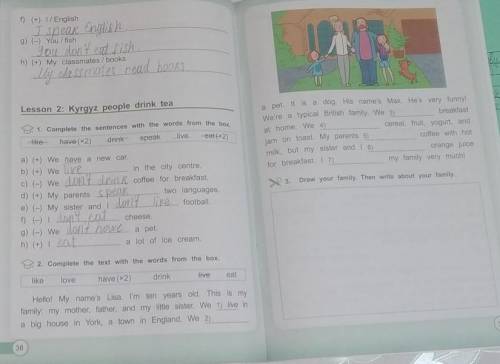 f) (+) I / English
I speak English
g) (–) You / fish
You don't eat fish
h) (+) My classmates / books
My classmates read books
Lesson 2: Kyrgyz people drink tea
1. Complete the sentences with the words from the box.
like have (×2) drink speak live eat (×2)
a) (+) We have a new car.
b) (+) We live in the city centre.
c) (–) We don't drink coffee for breakfast.
d) (+) My parents speak two languages.
e) (–) My sister and I don't like football.
f) (–) I don't eat cheese.
g) (–) We don't have a pet.
h) (+) I eat a lot of ice cream.
2. Complete the text with the words from the box.
like love have (×2) drink live eat
Hello! My name's Lisa. I'm ten years old. This is my
family: my mother, father, and my little sister. We 1) live in
a big house in York, a town in England. We 2)
a pet. It is a dog. His name's Max. He's very funny!
We're a typical British family. We 3) breakfast
at home. We 4) cereal, fruit, yogurt, and
jam on toast. My parents 5) coffee with hot
milk, but my sister and I 6) orange juice
for breakfast. I 7) my family very much!
3. Draw your family. Then write about your family.